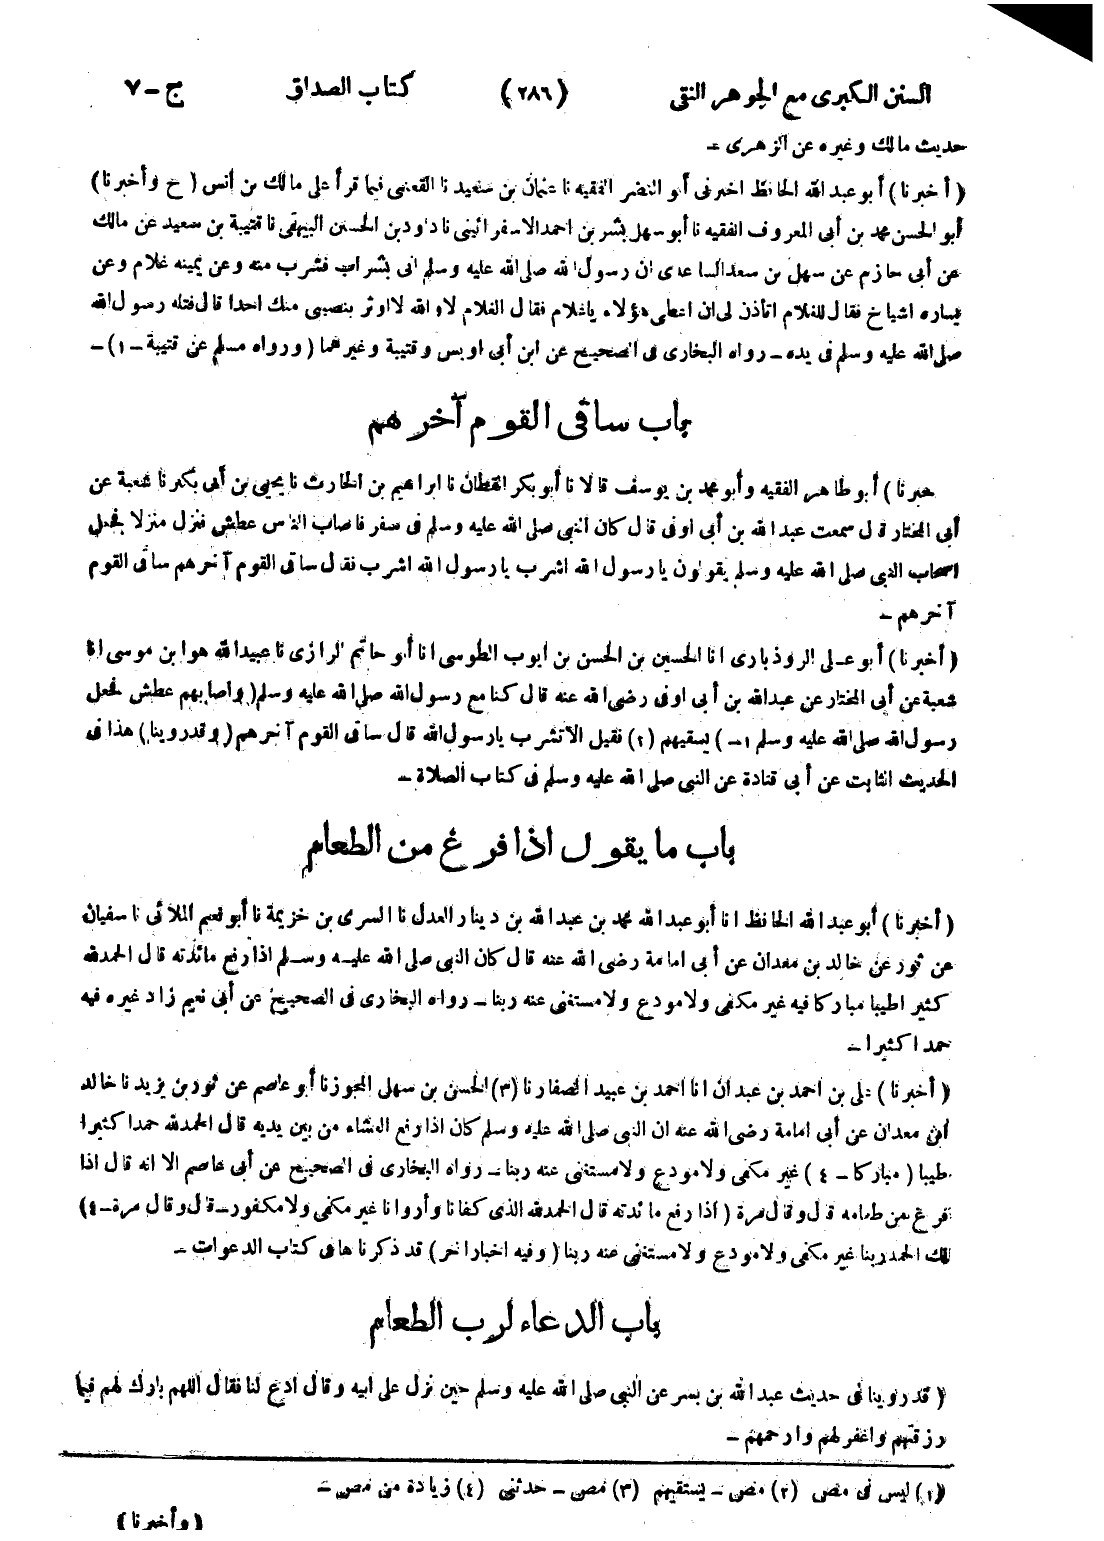 السنن الكبرى مع الجوهر النقى (٢٨٦) كتاب الصداق ج-٧
حديث مالك وغيره عن الزهرى -
(أخبرنا) أبو عبد الله الحافظ اخبرنى أبو النضر الفقيه نا عثمان بن سعيد نا القعنبى فيما قرأ على مالك بن أنس (ح وأخبرنا)
أبو الحسن محمد بن أبى المعروف الفقيه نا أبو سهل بشر بن احمد الاسفرائينى نا داود بن الحسين البيهقى نا قتيبة بن سعيد عن مالك
عن أبى حازم عن سهل بن سعد الساعدى ان رسول الله صلى الله عليه وسلم اتى بشراب فشرب منه وعن يمينه غلام وعن
يساره اشياخ فقال للغلام اتأذن لى ان اعطى هؤلاء يا غلام فقال الغلام لا والله لا اوثر بنصيبى منك احدا قال فتله رسول الله
صلى الله عليه وسلم فى يده - رواه البخارى فى الصحيح عن ابن أبى اويس وقتيبة وغيرهما (ورواه مسلم عن قتيبة - ١) -
باب ساقى القوم آخرهم
خبرنا) أبو طاهر الفقيه وأبو محمد بن يوسف قالا نا أبو بكر القطان نا ابراهيم بن الحارث نا يحيى بن أبى بكير نا شعبة عن
أبى المختار قال سمعت عبد الله بن أبى اوفى قال كان النبى صلى الله عليه وسلم فى سفر فاصاب الناس عطش فنزل منزلا فجعل
اصحاب النبى صلى الله عليه وسلم يقولون يا رسول الله اشرب يا رسول الله اشرب فقال ساقى القوم آخرهم ساقى القوم
آخرهم -
(أخبرنا) أبو على الروذبارى انا الحسين بن الحسن بن ايوب الطوسى انا أبو حاتم الرازى نا عبيد الله هو ابن موسى انا
شعبة عن أبى المختار عن عبد الله بن أبى اوفى رضى الله عنه قال كنا مع رسول الله صلى الله عليه وسلم (واصابهم عطش فجعل
رسول الله صلى الله عليه وسلم ١ -) يسقيهم (٢) فقيل الا تشرب يا رسول الله قال ساقى القوم آخرهم (وقد روينا) هذا فى
الحديث الثابت عن أبى قتادة عن النبى صلى الله عليه وسلم فى كتاب الصلاة -
باب ما يقول اذا فرغ من الطعام
(أخبرنا) أبو عبد الله الحافظ انا أبو عبد الله محمد بن عبد الله بن دينار العدل نا السرى بن خزيمة نا أبو نعيم الملائى نا سفيان
عن ثور عن خالد بن معدان عن أبى امامة رضى الله عنه قال كان النبى صلى الله عليه وسلم اذا رفع مائدته قال الحمد لله
كثيرا طيبا مباركا فيه غير مكفى ولا مودع ولا مستغنى عنه ربنا - رواه البخارى فى الصحيح عن أبى نعيم زاد غيره فيه
حمدا كثيرا -
(أخبرنا) على بن احمد بن عبدان انا احمد بن عبيد الصفار نا (٣) الحسن بن سهل المجوز نا أبو عاصم عن ثور بن يزيد نا خالد
ابن معدان عن أبى امامة رضى الله عنه ان النبى صلى الله عليه وسلم كان اذا رفع العشاء من بين يديه قال الحمد لله حمدا كثيرا
طيبا (مباركا - ٤) غير مكفى ولا مودع ولا مستغنى عنه ربنا - رواه البخارى فى الصحيح عن أبى عاصم الا انه قال اذا
فرغ من طعامه قال وقال مرة (اذا رفع مائدته قال الحمد لله الذى كفانا وأروانا غير مكفى ولا مكفور - قال وقال مرة - ٤)
لك الحمد ربنا غير مكفى ولا مودع ولا مستغنى عنه ربنا (وفيه اخبار اخر) قد ذكرناها فى كتاب الدعوات -
باب الدعاء لرب الطعام
(قد روينا فى حديث عبد الله بن بسر عن النبى صلى الله عليه وسلم حين نزل على ابيه وقال ادع لنا فقال اللهم بارك لهم فيما
رزقتهم واغفر لهم وارحمهم -
(١) ليس فى مص (٢) مص - يستقيهم (٣) مص - حدثنى (٤) زيادة من مص -
(وأخبرنا)